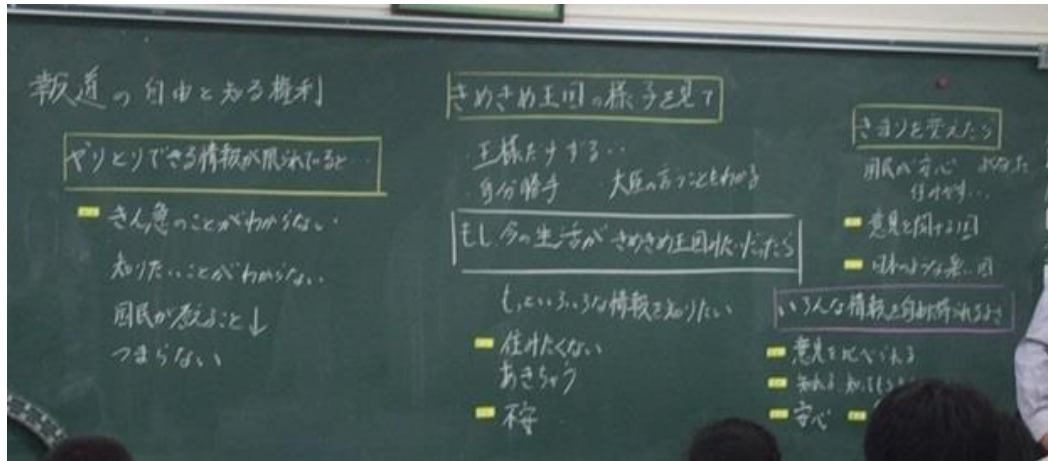 報道の自由と知る権利
やりとりできる情報が限られていると…
きん急のことがわからない
知りたいことがわからない
国民が考えること↓
つまらない
きめきめ王国の様子を見て
・王様だけずるい
・自分勝手 ・大臣の言うこともわかる
もし今の生活がきめきめ王国みたいだったら
もっといろいろな情報を知りたい
住みたくない
あきちゃう
不安
きまりを変えたら
国民が安心 よくなった
住みやすい…
意見を聞ける国
日本のような良い国
いろんな情報を自由に得られるよさ
意見を比べられる
知れる
安心